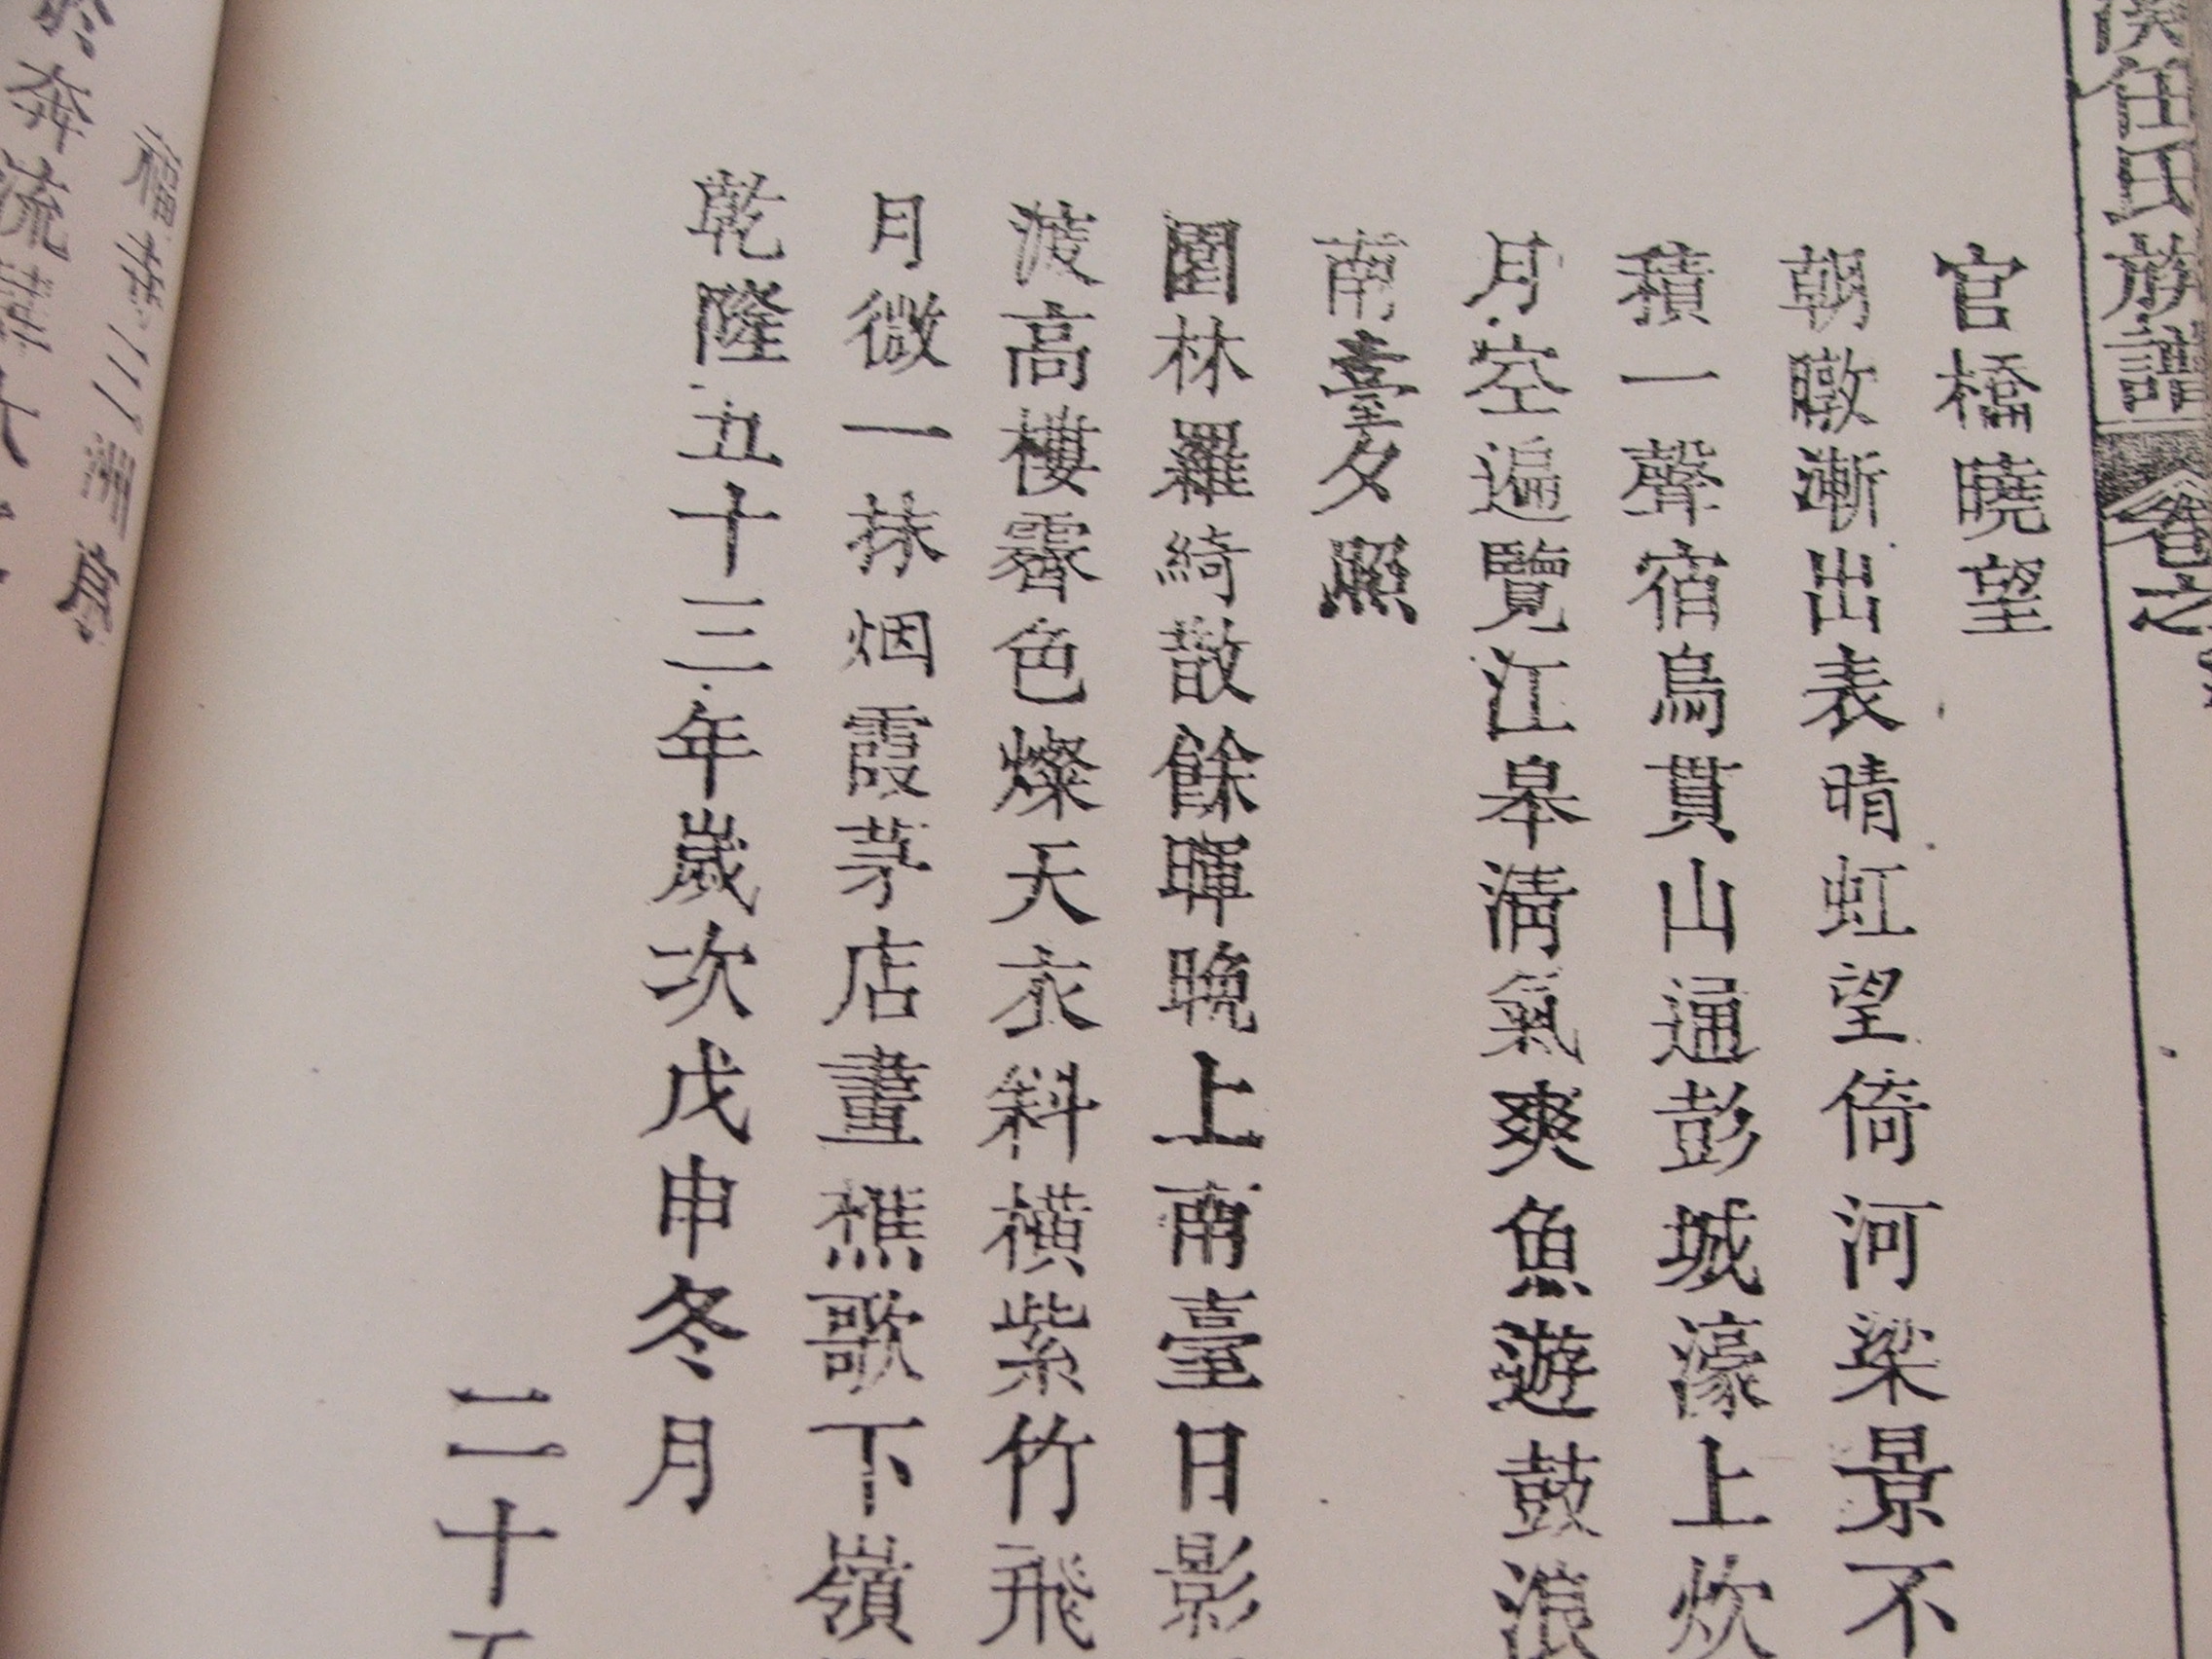 任氏族譜 卷之
官橋曉望
朝暾漸出表晴虹望倚河梁景不
積一聲宿鳥貫山通彭城濠上炊
月空遍覽江皋清氣爽魚遊鼓浪
南臺夕照
園林羅綺散餘暉晚上南臺日影
波高樓霽色燦天衣斜橫紫竹飛
月微一抹烟霞茅店畫樵歌下嶺
乾隆五十三年歲次戊申冬月
二十
福寺三洲
奔流